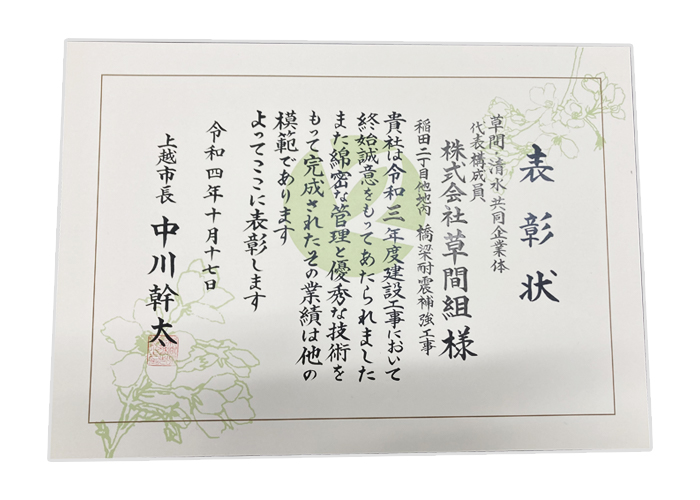 表彰状
草間・清水 共同企業体
代表構成員
株式会社草間組様
稲田二丁目他地内 橋梁耐震補強工事
貴社は令和三年度建設工事において
終始誠意をもってあたられました
また綿密な管理と優秀な技術を
もって完成されたその業績は他の
模範であります
よってここに表彰します
令和四年十月十七日
上越市長 中川幹太